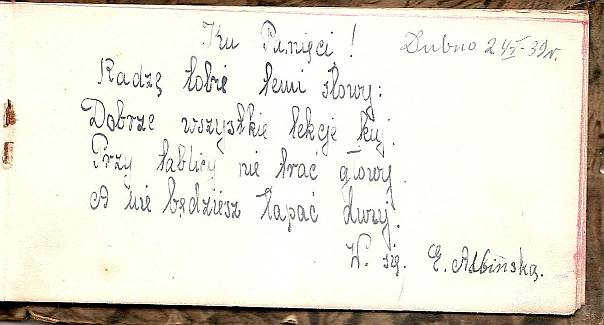 Ku Pamięci! Dubno 24 V-39r.
Radzę tobie temi słowy:
Dobrze wszystkie lekcje kuj.
Przy tablicy nie trać głowy.
A nie będziesz łapać dwuj.
W. się. E. Albińska.